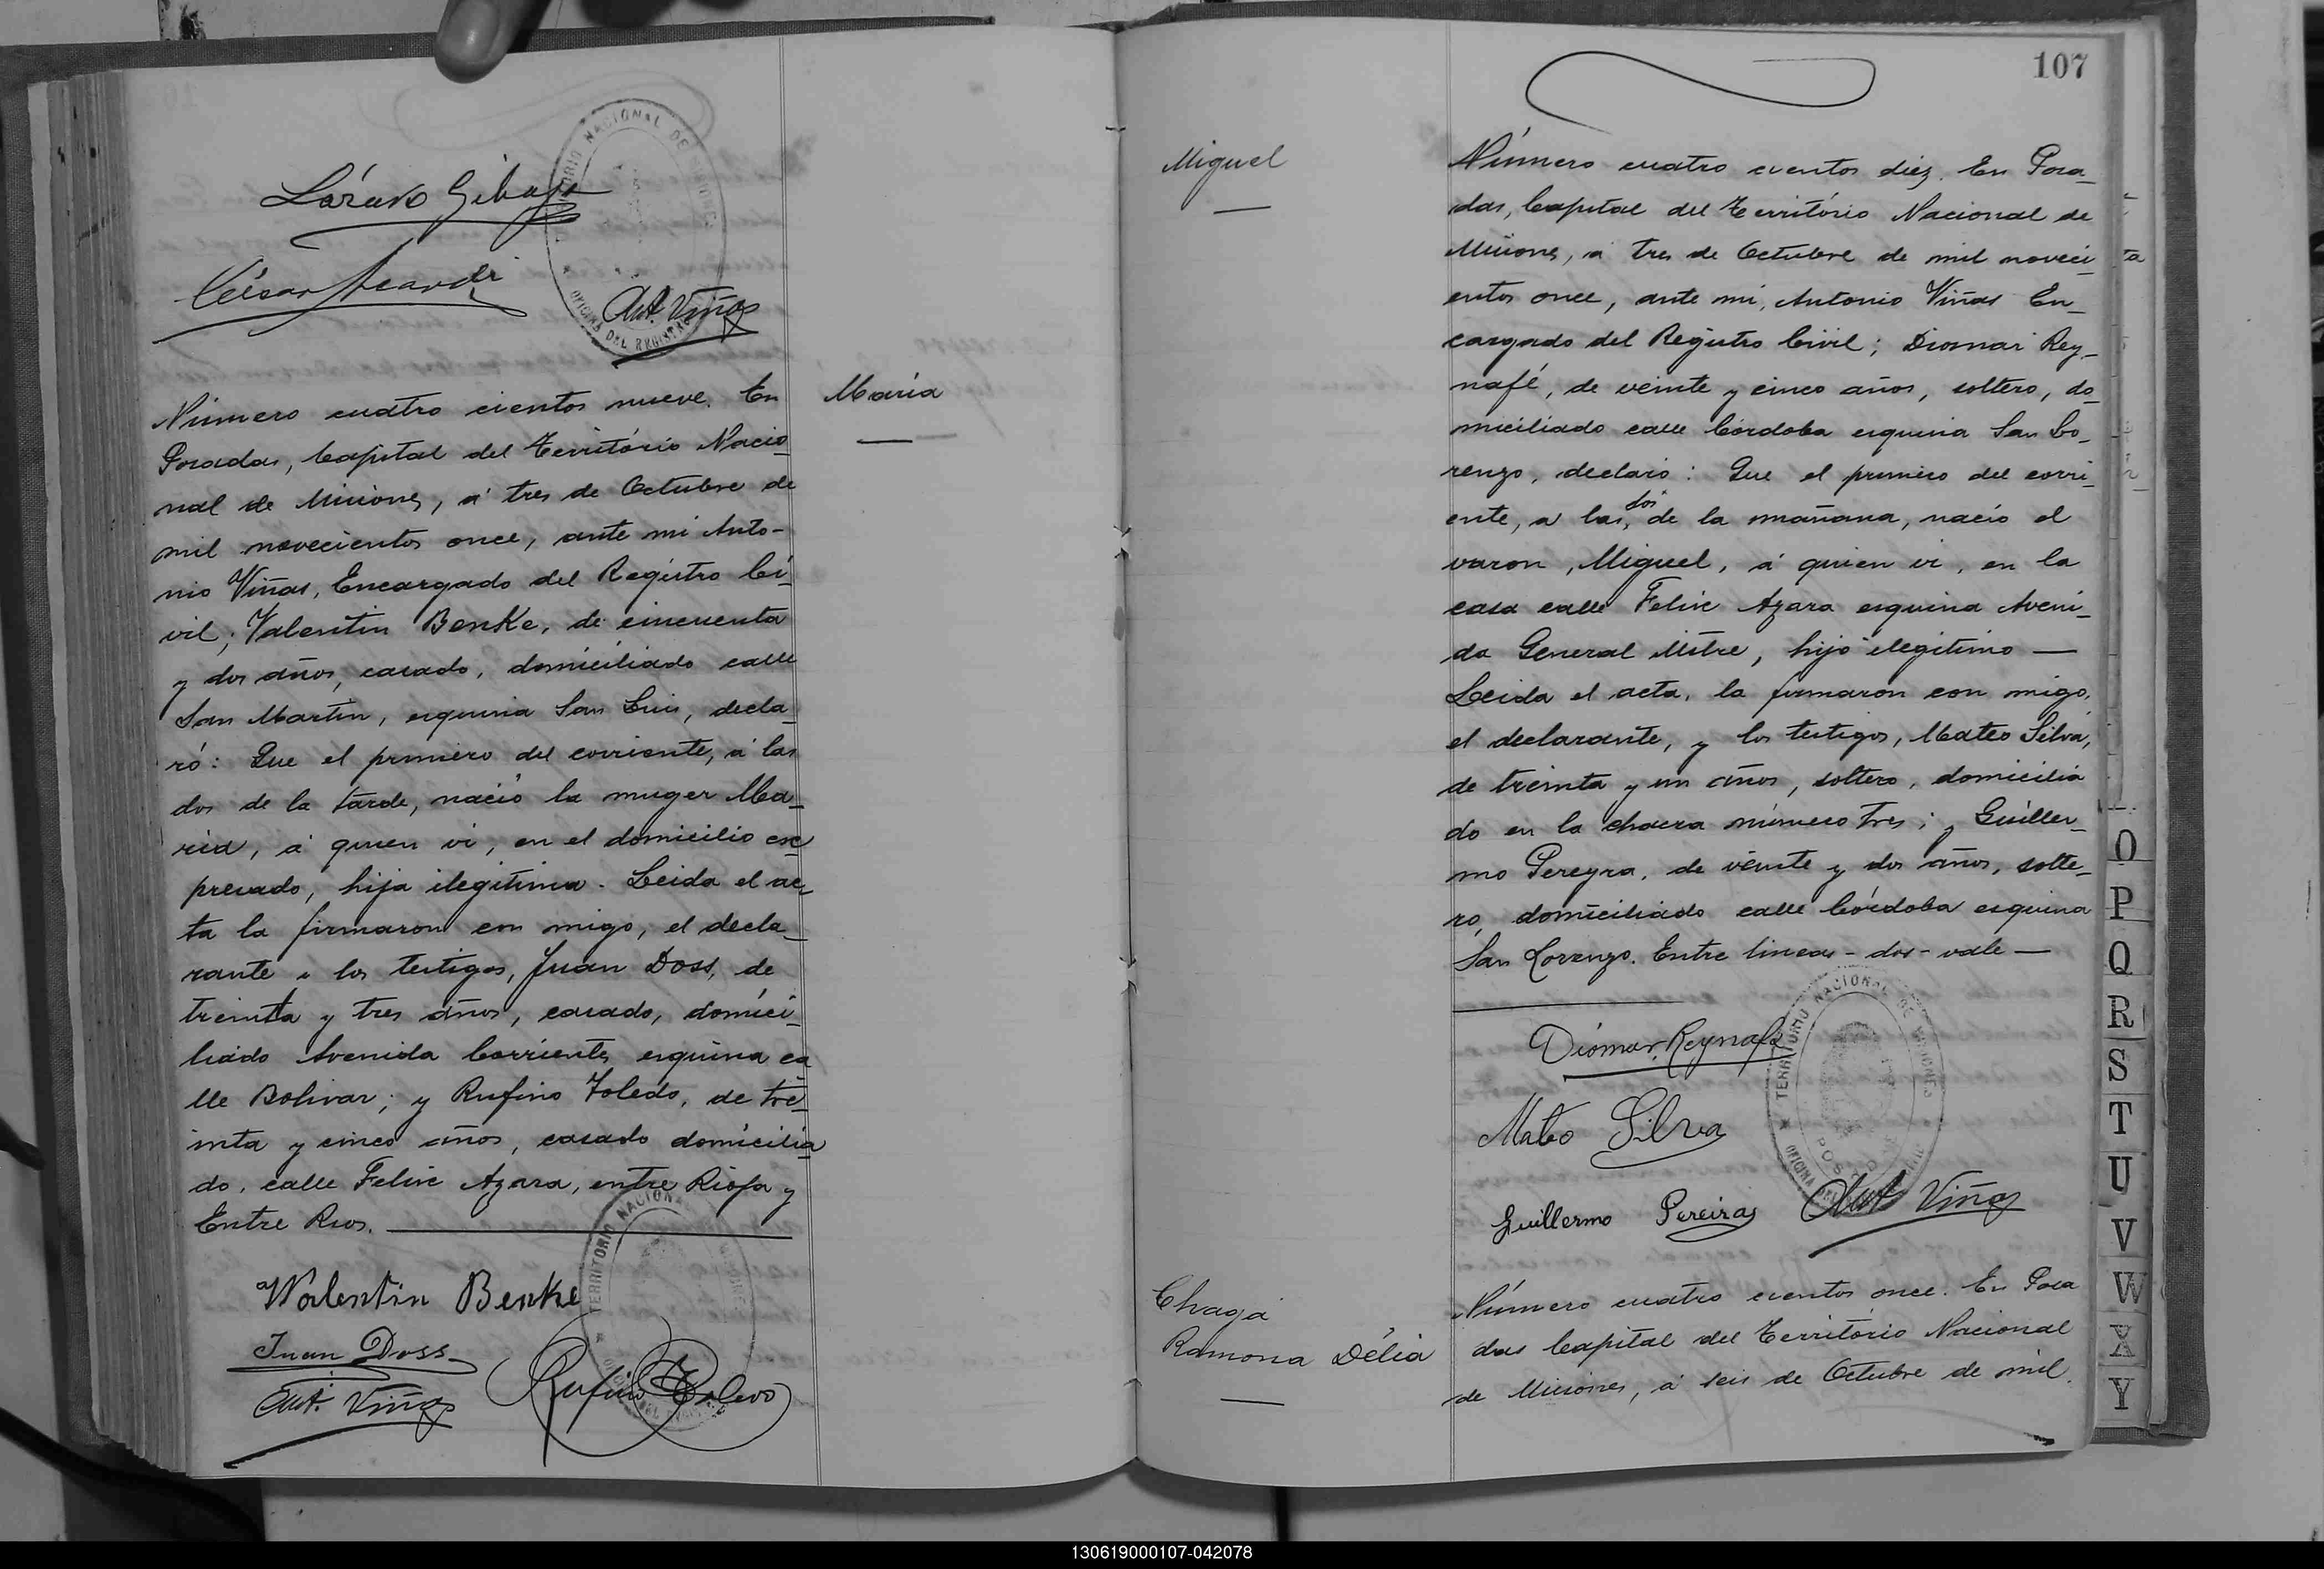 Lázaro Gibaja
César
Ant. Viñas
TERRITORIO NACIONAL DE MISIONES
OFICINA DEL REGISTRO
María
Número cuatro cientos nueve. En
Posadas, Capital del Território Nacio_
nal de Misiones, á tres de Octubre de
mil novecientos once, ante mi Anto-
nio Viñas, Encargado del Registro Ci_
vil; Valentin Benke, de cincuenta
y dos años, casado, domiciliado calle
San Martin, esquina San Luis, decla_
ró: Que el primero del corriente, á las
dos de la tarde, nació la muger Ma_
ria, á quien vi, en el domicilio ex_
presado, hija ilegitima. Leida el ac_
ta la firmaron con migo, el decla_
rante y los testigos, Juan Doss, de
treinta y tres años, casado, domici_
liado Avenida Corrientes esquina ca
lle Bolivar; y Rufino Toledo, de tre_
inta y cinco años, casado domicilia
do, calle Felix Azara, entre Rioja y
Entre Rios.
Walentin Benke
Juan Doss
Ant. Viñas
Rufino Toledo
TERRITORIO NACIONAL
107
Miguel
Número cuatro cientos diez. En Posa_
das, Capital del Território Nacional de
Misiones, á tres de Octubre de mil noveci_
entos once, ante mi, Antonio Viñas En_
cargado del Registro Civil; Diomar Rey_
nafé, de veinte y cinco años, soltero, do_
miciliado calle Córdoba esquina San Lo_
renzo, declaró: Que el primero del corri_
ente, a las, dos de la mañana, nació el
varon, Miguel, á quien vi, en la
casa calle Felix Azara esquina Aveni_
da General Mitre, hijo ilegitimo —
Leida el acta, la firmaron con migo,
el declarante, y los testigos, Mateo Silva,
de treinta y un años, soltero, domicilia
do en la chacra número tres; y Guiller_
mo Pereyra, de veinte y dos años, solte_
ro, domiciliado calle Córdoba esquina
San Lorenzo. Entre lineas - dos - vale —
Diomar Reynafé
Mateo Silva
Guillermo Pereiras
Ant. Viñas
TERRITORIO NACIONAL DE MISIONES
OFICINA DEL
POSADAS
Chaga
Ramona Délia
Número cuatro cientos once. En Posa
das Capital del Território Nacional
de Misiones, á seis de Octubre de mil
O
P
Q
R
S
T
U
V
W
X
Y
130619000107-042078